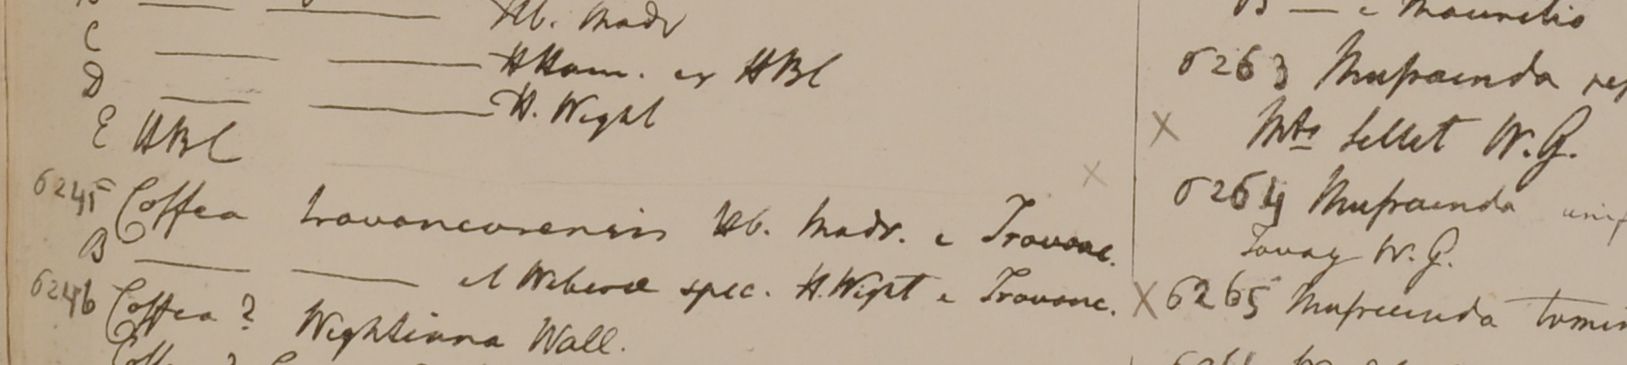 Hb. Madr
C — — HHam. ex HBC
D — — H. Wight
E HBC
6245 Coffea travancorensis Hb. Madr. e Travanc.
B — — spec. H. Wight e Travanc.
6246 Coffea? Wightiana Wall.
B — e Mauritio
6263 Mussaenda
X Mts Sillet W.G.
X
6264 Mussaenda
Tavay W.G.
X 6265 Mussaenda